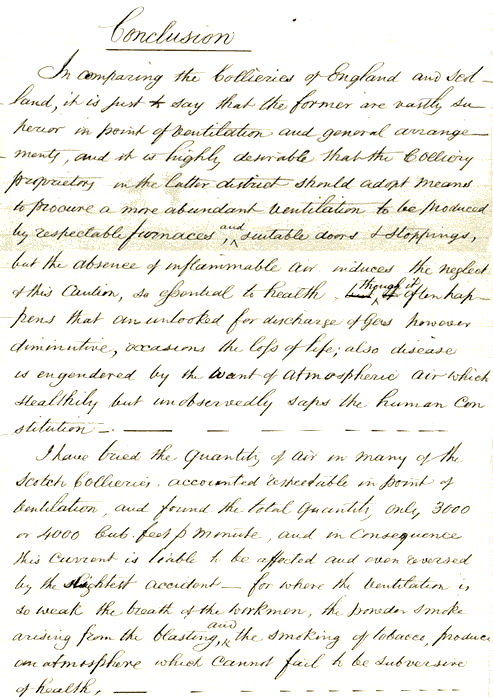 Conclusion
In comparing the Collieries of England and Scot-
land, it is just to say that the former are vastly su-
perior in point of ventilation and general arrange-
ments, and it is highly desirable that the Colliery
proprietors in the latter district should adopt means
to procure a more abundant ventilation to be produced
by respectable furnaces, and suitable doors & stoppings,
but the absence of inflammable air induces the neglect
of this Caution, so essential to health, though it often hap-
pens that an unlooked for discharge of Gas however
diminutive, occasions the loss of life; also disease
is engendered by the want of atmospheric air which
stealthily but unobservedly saps the human Con
stitution —.
I have tried the quantity of air in many of the
Scotch Collieries. accounted respectable in point of
ventilation, and found the total quantity only 3000
or 4000 Cub. feet p minute, and in Consequence
this current is liable to be affected and even reversed
by the slightest accident — for where the ventilation is
so weak the breath of the workmen, the powder smoke
arising from the blasting, and the smoking of tobacco, produce
an atmosphere which cannot fail to be subversive
of health, —